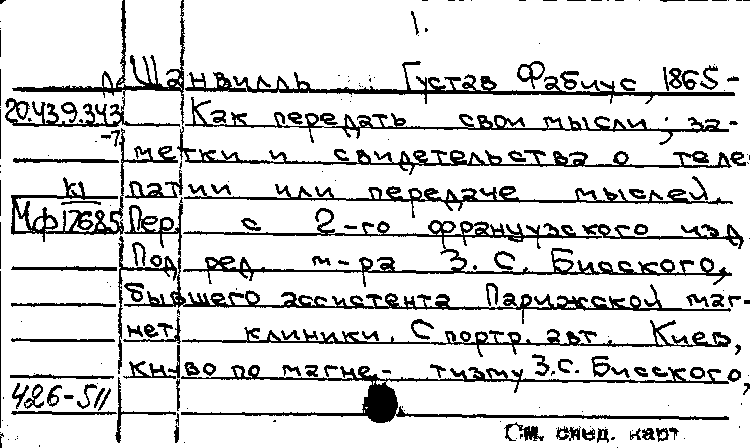 1.
Ле Шанвилль Густав Фабиус, 1865-
20.43.9.343 Как передать свои мысли; за-
-7 метки и свидетельства о теле
К1 патии или передаче мыслей.
Мф 17685 Пер. с 2-го французского изд
Под ред. м-ра З. С. Бисского,
бывшего ассистента Парижской маг-
нет. клиники. С портр. авт. Киев,
кн-во по магне- тизму З.С. Бисского,
426-511
См. след. карт